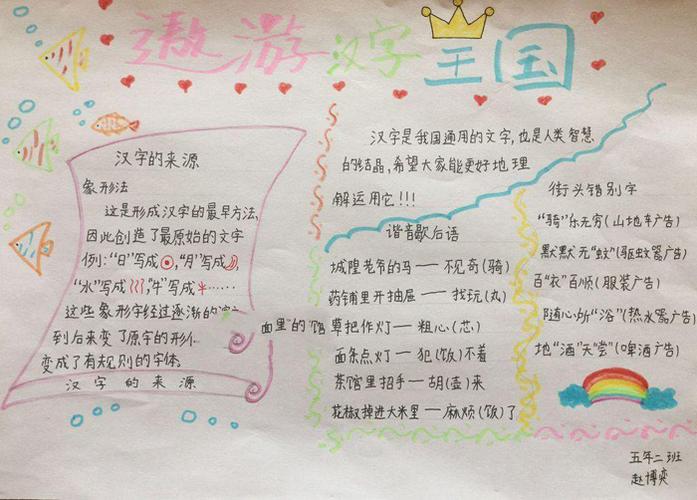 遨游汉字王国
汉字的来源
象形法
这是形成汉字的最早方法,
因此创造了最原始的文字
例:"日"写成,"月"写成
"水"写成,"牛"写成……
这些象形字经过逐渐的演
到后来变了原字的形
变成了有规则的字体。
汉字的来源
汉字是我国通用的文字,也是人类智慧
的结晶,希望大家能更好地理
解运用它!!!
谐音歇后语
城隍老爷的马——不见奇(骑)
药铺里开抽屉——找玩(丸)
面里"的"馅
草把作灯——粗心(芯)
面条点灯——犯(饭)不着
茶馆里招手——胡(壶)来
花椒掉进大米里——麻烦(饭)了
街头错别字
"骑"乐无穷(山地车广告)
默默无"蚊"(驱蚊器广告)
百"衣"百顺(服装广告)
随心所"浴"(热水器广告)
地"酒"天堂"(啤酒广告)
五年二班
赵博奕